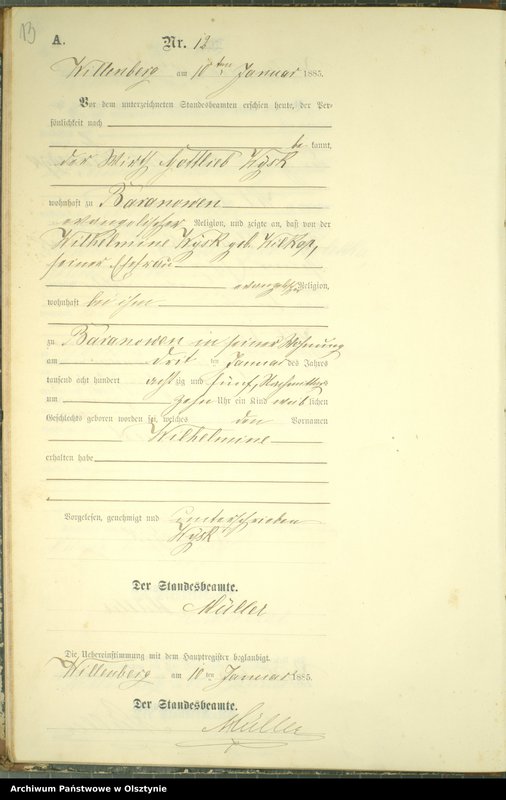 13
A.
Nr. 12
Willenberg am 10ten Januar 1885.
Vor dem unterzeichneten Standesbeamten erschien heute, der Per-
sönlichkeit nach
be kannt,
der Wirth Gottlieb Kysk
wohnhaft zu Baranowen
evangelischer Religion, und zeigte an, daß von der
Wilhelmine Kysk geb.
seiner Ehefrau
evangelischer Religion,
wohnhaft bei ihm
zu Baranowen in seiner Wohnung
am drit ten Januar des Jahres
tausend acht hundert acht zig und fünf, Nachmittags
um zehn Uhr ein Kind weib lichen
Geschlechts geboren worden sei, welches den Vornamen
Wilhelmine
erhalten habe
Vorgelesen, genehmigt und unterschrieben
Kysk
Der Standesbeamte.
Müller
Die Uebereinstimmung mit dem Hauptregister beglaubigt.
Willenberg am 10 ten Januar 1885.
Der Standesbeamte.
Müller
Archiwum Państwowe w Olsztynie